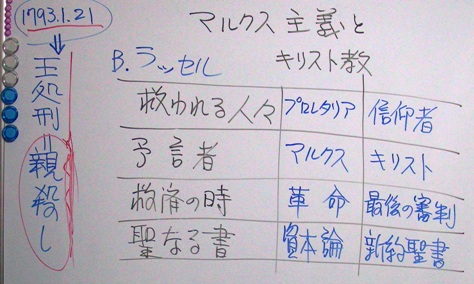 1793.1.21
王処刑=親殺し
マルクス主義と
キリスト教
B.ラッセル
救われる人々 プロレタリア 信仰者
予言者 マルクス キリスト
救済の時 革命 最後の審判
聖なる書 資本論 新約聖書